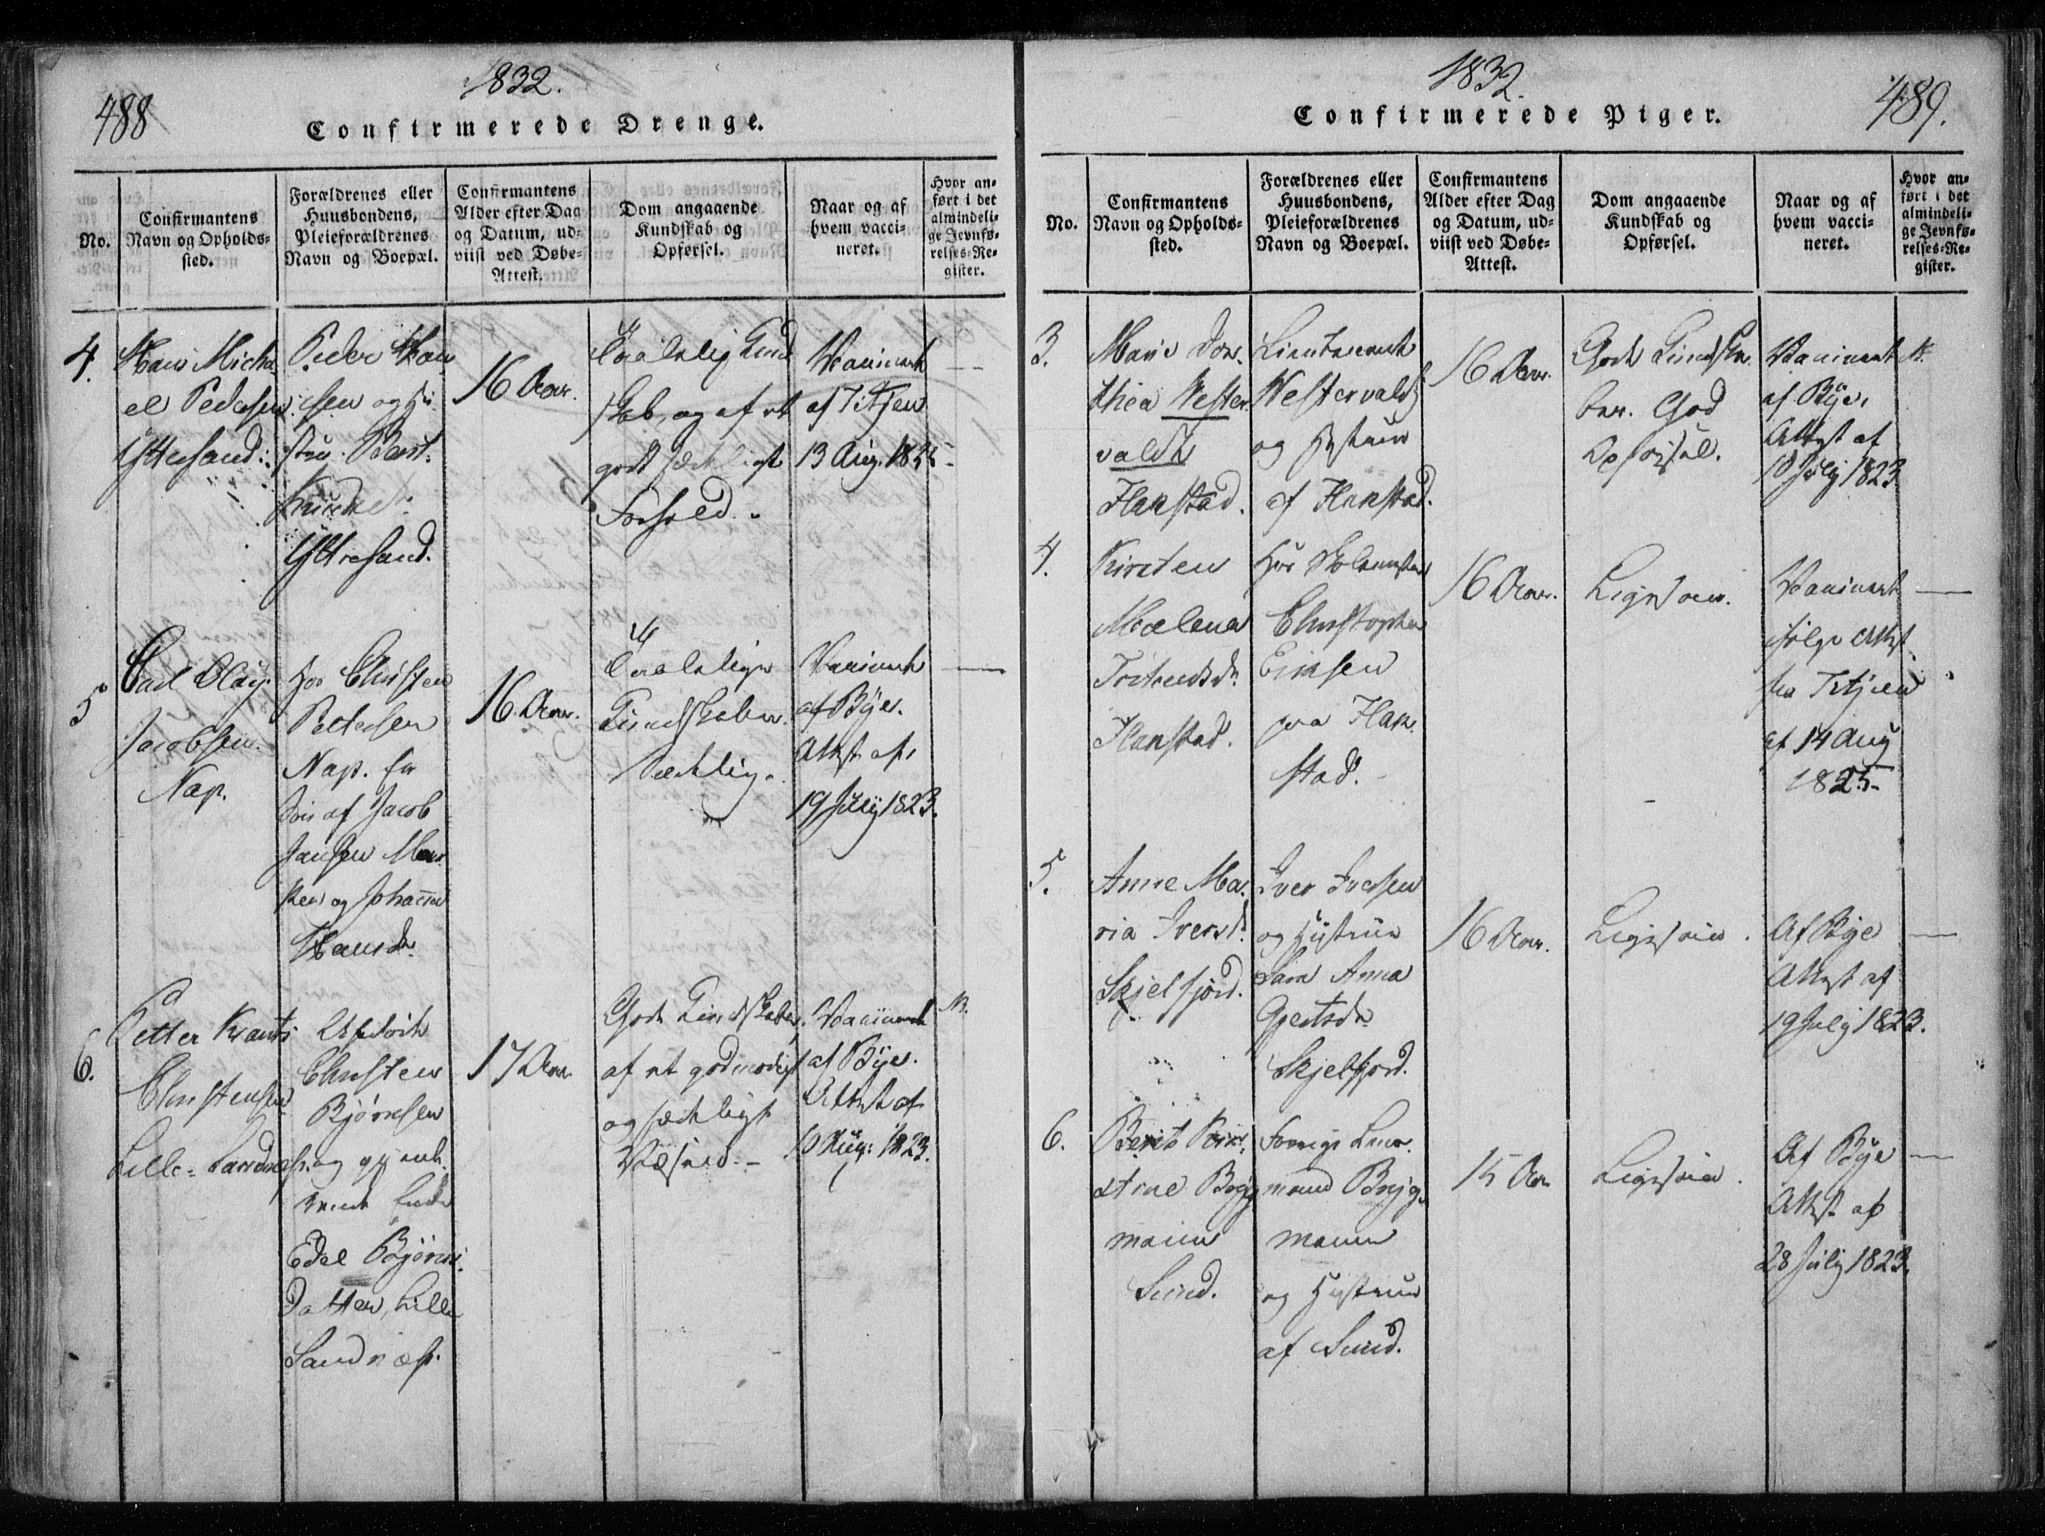 488
1832.
Confirmerede Drenge.
No.
Confirmantens
Navn og Opholds-
sted.
Forældrenes eller
Huusbondens,
Pleieforældrenes
Navn og Boepæl.
Confirmantens
Alder efter Dag
og Datum, ud-
viist ved Døbe-
Attest.
Dom angaaende
Kundskab og
Opførsel.
Naar og af
hvem vacci-
neret.
Hvor an-
ført i det
almindeli-
ge Jevnfø-
relses-Re-
gister.
4.
Hans Micha
el Pedersen
Yttersand.
Peder Han
sen og Hu
stru Berit
Yttresand.
16 Aar.
Taalelig Kund
skab, og af et
godt sædeligt
Forhold.
Vaccineret
af Titjen
13 Aug. 1825
5
Carl Olaj
Jacobsen
Nap.
Hos Christen
Pettersen
Nap. for
Søn af Jacob
Jansen
og Johanna
Hansdr.
16 Aar.
Taalelige
Kundskaber.
Sædelig.
Vaccineret
af Bye.
Attest af
19 July 1823.
6.
Petter Krants
Christensen
Lille-Sandnæs.
Christen
Bjørnsen
og
Edel Bjørns
Datter, Lille
Sandnæs.
17 Aar
Gode Kundskaber
af et godmodigt
og sædeligt
Væsen.
Vaccineret
af Bye.
Attest af
10 Aug: 1823.
N.
1832.
489.
Confirmerede Piger.
No.
Confirmantens
Navn og Opholds-
sted.
Forældrenes eller
Huusbondens,
Pleieforældrenes
Navn og Boepæl.
Confirmantens
Alder efter Dag
og Datum, ud-
viist ved Døbe-
Attest.
Dom angaaende
Kundskab og
Opførsel.
Naar og af
hvem vacci-
neret.
Hvor an-
ført i det
almindeli-
ge Jevnfø-
relses-Re-
gister.
3.
Marie Dor
thea Wester
valdt
Flakstad.
Lieutenant
Westervaldt
og Hustrue
af Flakstad.
16 Aar.
Gode Kundska
ber. God
Opførsel.
Vaccineret
af Bye,
Attest af
10 July 1823
N.
4.
Kirsten
Malena
Flakstad.
Hos Skolemester
Christopher
Ericksen
paa Flak
stad.
16 Aar.
Ligesom.
Vaccineret
følge Attest
fra Titjen
af 14 Aug
1825
5.
Anne Ma
ria Iversd.
Skjelfjord.
Iver Iversen
og Hustrue
Sara Anna
Gjertsdr
Skjelfjord.
16 Aar.
Ligesom.
Af Bye
Attest af
19 July 1823.
6.
Berit Kir
stine Bryg
mann
Sund.
Forrige Lens
mand Bryg
mann
og Hustrue
af Sund.
15 Aar
Ligesom.
Af Bye
Attest af
28 July 1823.